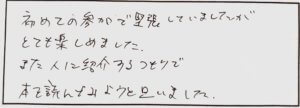 初めての参加で緊張していましたが
とても楽しめました。
また人に紹介するつもりで
本を読んでみようと思いました。